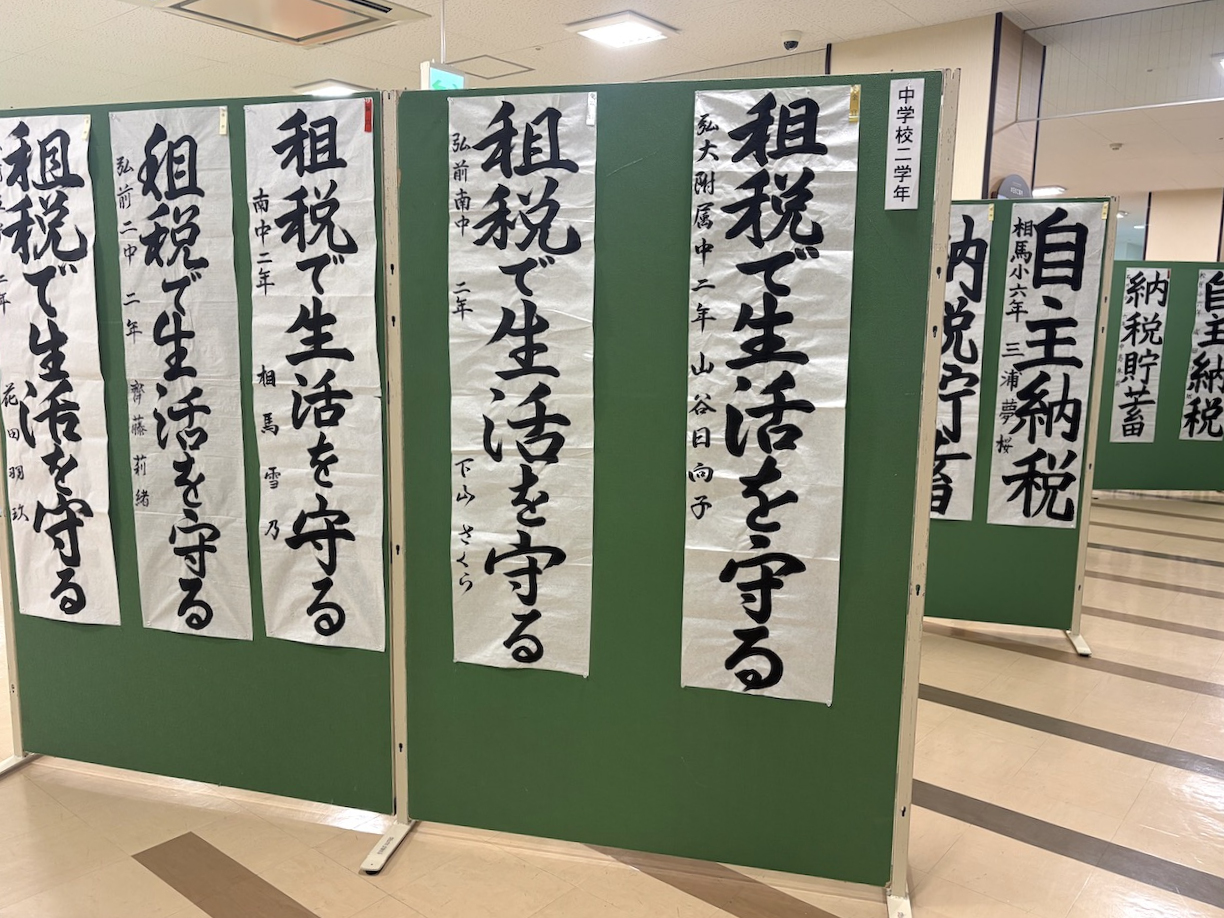 中学校二学年
租税で生活を守る
弘大附属中 二年 山谷日向子
租税で生活を守る
弘前南中 二年 下山 さくら
租税で生活を守る
南中二年 相馬雪乃
租税で生活を守る
弘前二中 二年 齊藤莉緒
租税で生活を守る
二年 花田羽玖
自主納税
相馬小六年 三浦夢桜
納税貯蓄
自主納税
納税貯蓄